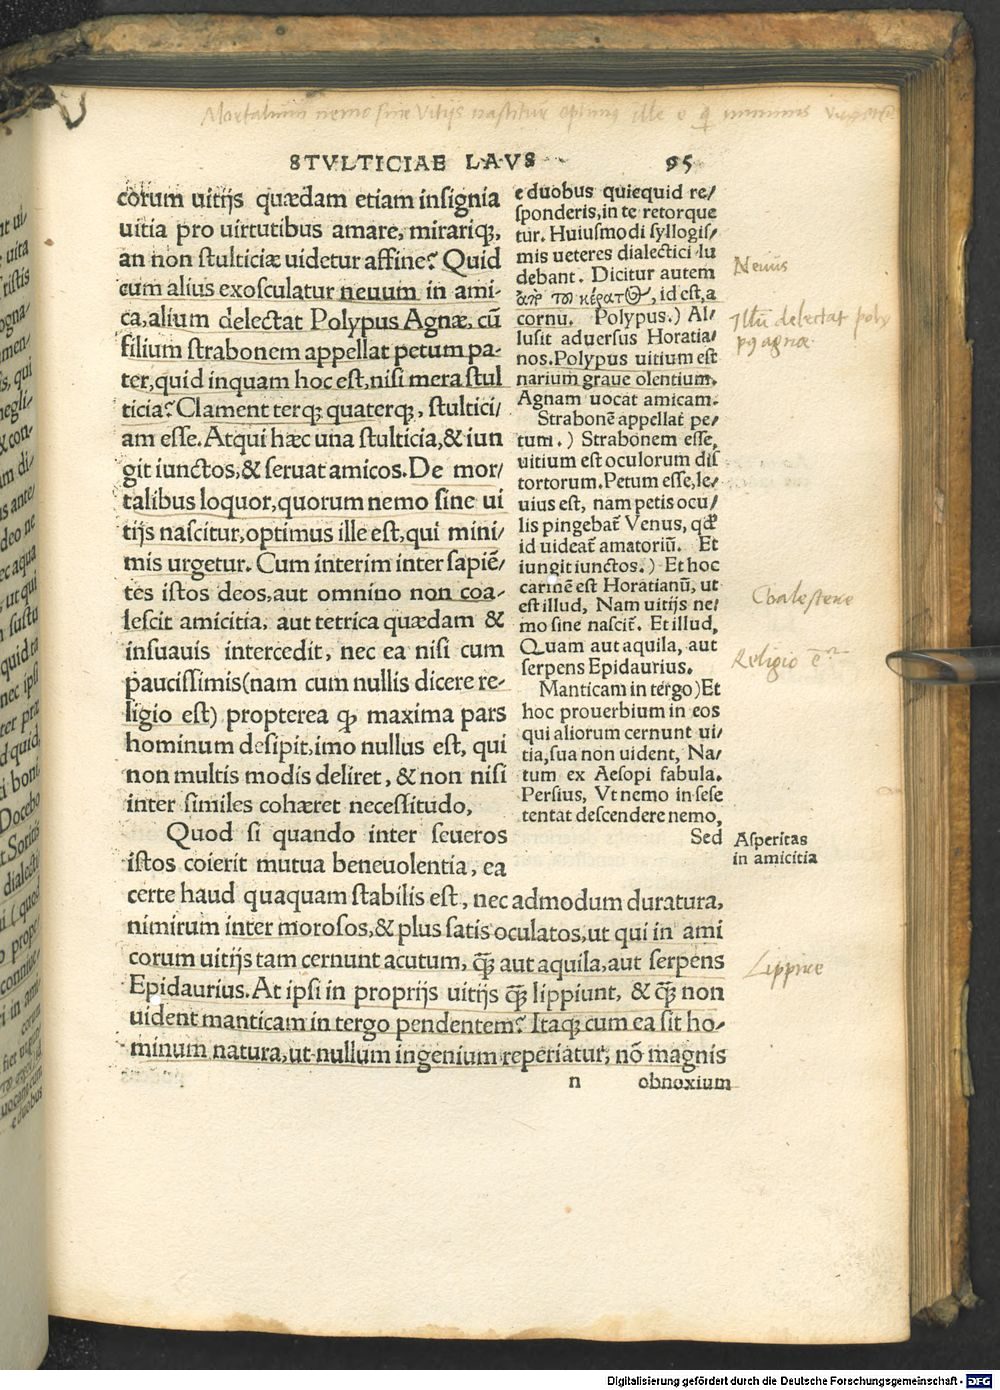 Mortalium nemo sine vitijs nascitur optimus ille e q minimis
STVLTICIAE LAVS 95
corum uitijs quædam etiam insignia
uitia pro uirtutibus amare, mirariq;,
an non stulticiæ uidetur affine? Quid
cum alius exosculatur neuum in ami-
ca, alium delectat Polypus Agnæ, cū
filium strabonem appellat petum pa-
ter, quid inquam hoc est, nisi mera stul
ticia? Clament terq; quaterq;, stultici/
am esse. Atqui hæc una stulticia, & iun
git iunctos, & seruat amicos. De mor/
talibus loquor, quorum nemo sine ui
tijs nascitur, optimus ille est, qui mini/
mis urgetur. Cum interim inter sapiē/
tes istos deos, aut omnino non coa-
lescit amicitia, aut tetrica quædam &
insuauis intercedit, nec ea nisi cum
paucissimis (nam cum nullis dicere re-
ligio est) propterea q, maxima pars
hominum desipit, imo nullus est, qui
non multis modis deliret, & non nisi
inter similes cohæret necessitudo,
Quod si quando inter seueros
istos coierit mutua beneuolentia, ea
certe haud quaquam stabilis est, nec admodum duratura,
nimirum inter morosos, & plus satis oculatos, ut qui in ami
corum uitijs tam cernunt acutum, q̃ aut aquila, aut serpens
Epidaurius. At ipsi in proprijs uitijs q̃ lippiunt, & q̃ non
uident manticam in tergo pendentem? Itaq; cum ea sit ho-
minum natura, ut nullum ingenium reperiatur, nō magnis
n obnoxium
e duobus quiequid re/
sponderis, in te retorque
tur. Huiusmodi syllogis/
mis ueteres dialectici lu
debant. Dicitur autem
ἀπὸ τοῦ κέρατος, id est, a
cornu. Polypus.) Al/
lusit aduersus Horatia/
nos. Polypus uitium est
narium graue olentium.
Agnam uocat amicam.
Strabonē appellat pe/
tum.) Strabonem esse,
uitium est oculorum dis
tortorum. Petum esse, le/
uius est, nam petis ocu/
lis pingebat̃ Venus, qđ
id uideat̃ amatoriū. Et
iungit iunctos.) Et hoc
carmē est Horatianū, ut
est illud, Nam uitijs ne/
mo sine nascit̃. Et illud,
Quam aut aquila, aut
serpens Epidaurius.
Manticam in tergo) Et
hoc prouerbium in eos
qui aliorum cernunt ui/
tia, sua non uident, Na/
tum ex Aesopi fabula.
Persius, Vt nemo in sese
tentat descendere nemo,
Sed
Neuus
Illū delectat poly
p9 agnæ
Coalescere
Religio ē
Asperitas
in amicitia
Lippire
Digitalisierung gefördert durch die Deutsche Forschungsgemeinschaft - DFG